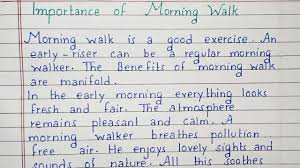 Importance of Morning Walk
Morning walk is a good exercise. An
early-riser can be a regular morning
walker. The Benefits of morning walk
are manifold.
In the early morning everything looks
fresh and fair. The atmosphere
remains pleasant and calm. A
morning walker breathes pollution
free air. He enjoys lovely sights and
sounds of nature. All this soothes